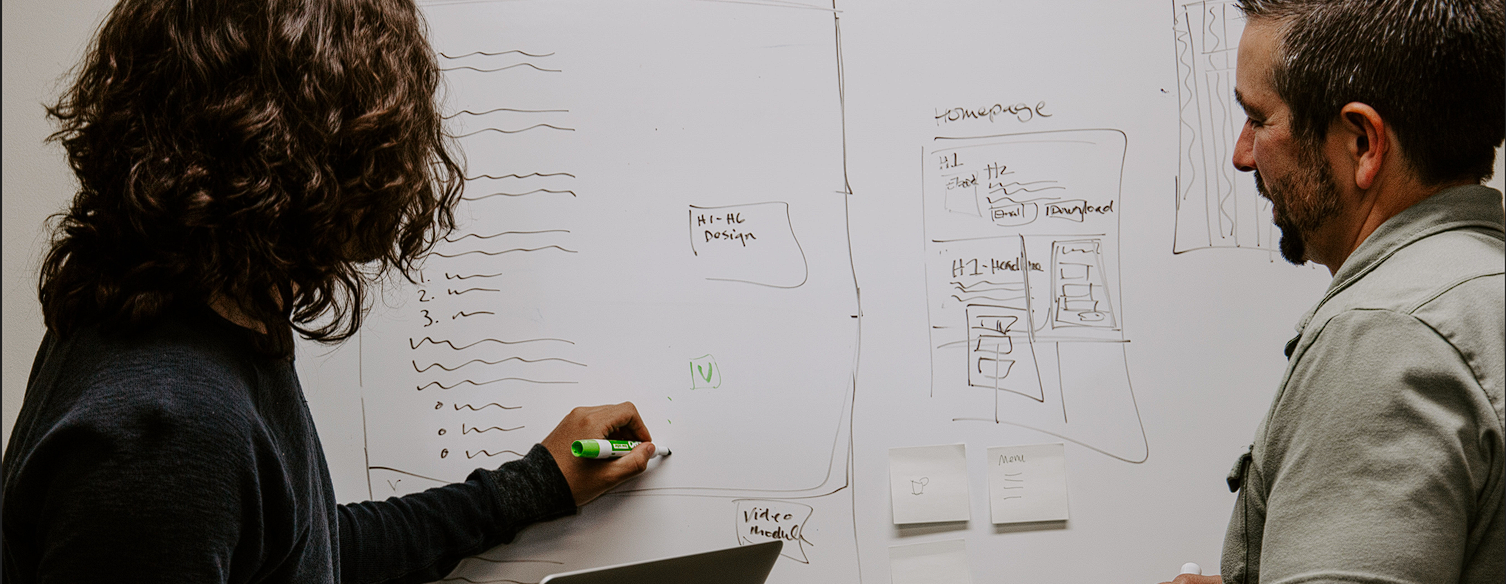 1.
2.
3.
H1-H6
Design
Video
Module
Homepage
H1
H2
Email
Download
H1-Headline
Menu